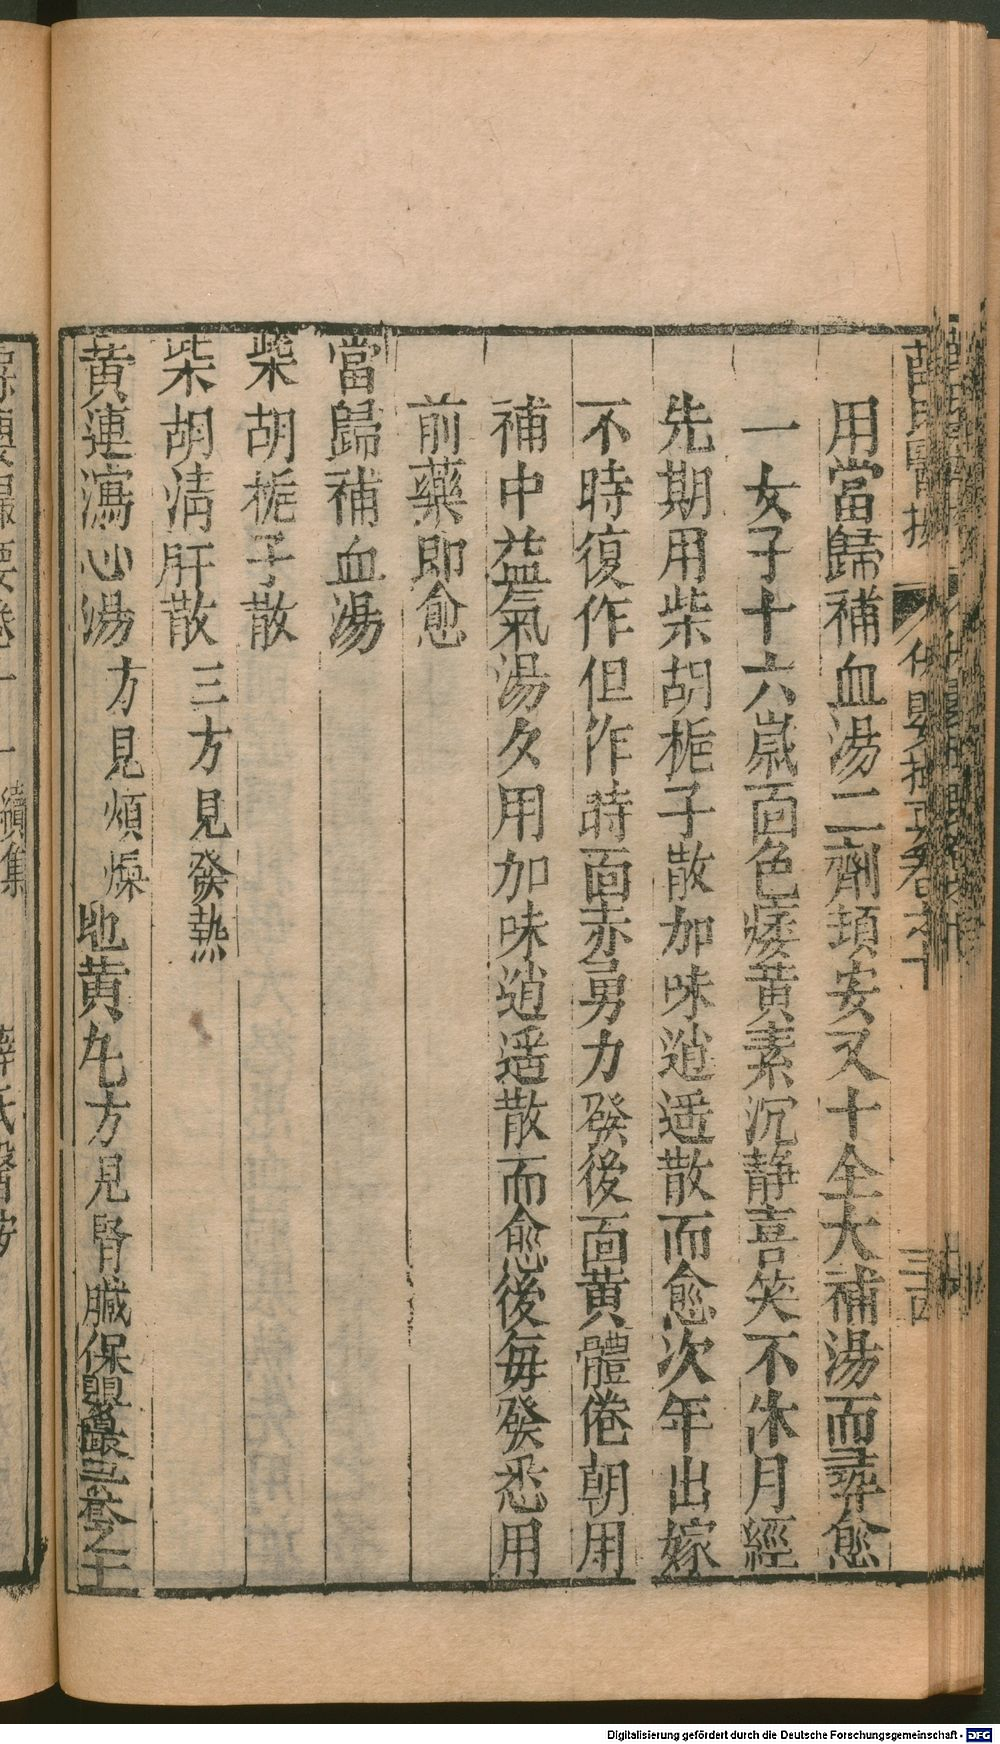 薛氏醫按 保嬰撮要卷之十
用當歸補血湯二劑頓安又十全大補湯而尋愈
一女子十六歲面色痿黃素沉静喜笑不休月經
先期用柴胡梔子散加味逍遥散而愈次年出嫁
不時復作但作時面赤勇力發後面黃體倦朝用
補中益氣湯夕用加味逍遥散而愈後每發悉用
前藥即愈
當歸補血湯
柴胡梔子散
柴胡清肝散 三方見發熱
黃連瀉心湯 方見煩燥 地黃丸 方見腎臟 保嬰撮要卷之十
續集
薛氏醫按
Digitalisierung gefördert durch die Deutsche Forschungsgemeinschaft - DFG